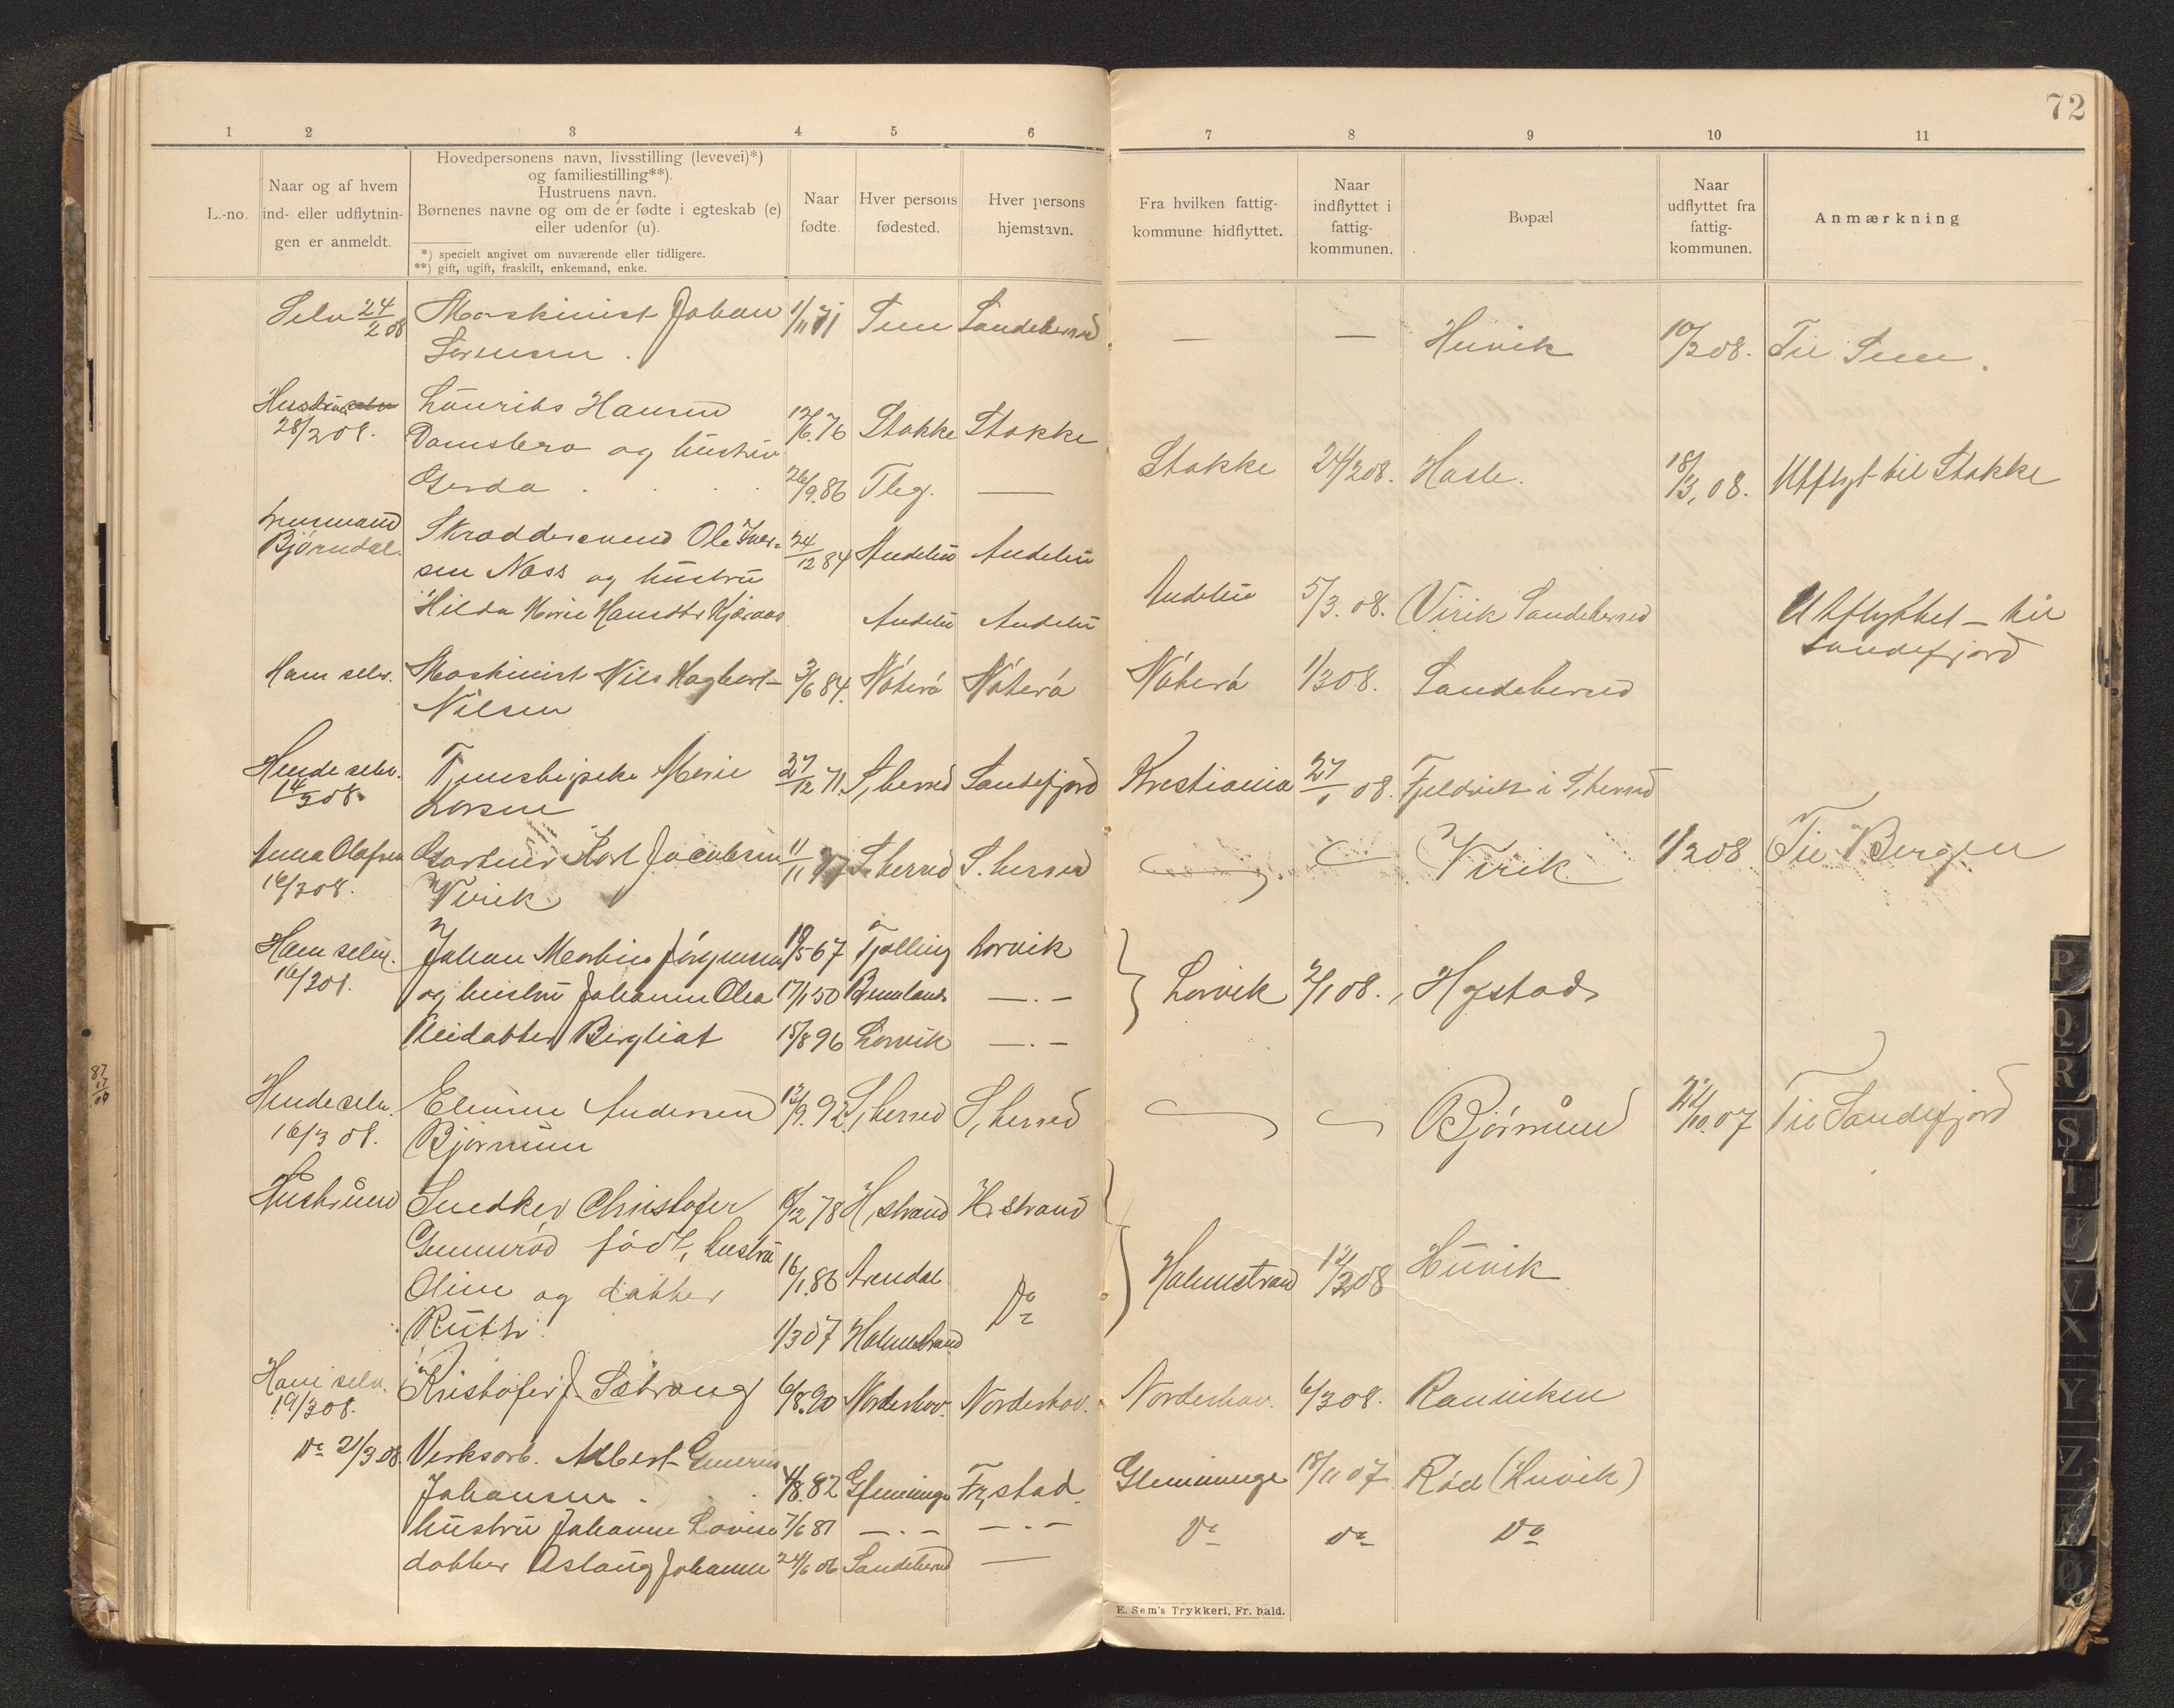 72
1 2 3 4 5 6 7 8 9 10 11
L.-no.
Naar og af hvem
ind- eller udflytnin-
gen er anmeldt.
Hovedpersonens navn, livsstilling (levevei)*)
og familiestilling**).
Hustruens navn.
Børnenes navne og om de er fødte i egteskab (e)
eller udenfor (u).
*) specielt angivet om nuværende eller tidligere.
**) gift, ugift, fraskilt, enkemand, enke.
Naar
fødte.
Hver persons
fødested.
Hver persons
hjemstavn.
Fra hvilken fattig-
kommune hidflyttet.
Naar
indflyttet i
fattig-
kommunen.
Bopæl
Naar
udflyttet fra
fattig-
kommunen.
Anmærkning
Selv 24/2 08 Maskinist Johan 1/11 71 Sem Sandeherred — — Huvik 10/2 08. Til Sem.
Sørensen.
Laurits Hansen 12/6. 76 Stokke Stokke
28/2 08. og hustru Stokke 24/2 08. Hasle. 18/3, 08. Utflyt til Stokke
Gerda 26/9. 86 Tbg. —
Lensmand
Bjørndal. Skræddersvend Ole Iver- 24/12 84 Andebu Andebu
sen Næss og hustru Andebu 5/3. 08. Virik Sandeherred Utflyttet – til
Hilda Marie Hansdtr Kjæraas Andebu Andebu Sandefjord
Ham selv. Maskinist Nils Hagbart 3/6 84. Nøterø Nøterø Nøterø 1/3 08. Sandeherred
Nilsen
Hende selv. Tjenestepike Marie 27/12 71. S, herred Sandefjord Kristiania 27/1 08. Fjeldvik i S, herred
14/3 08. Larsen
Anna Olafsen Gartner Karl Jacobsen 11/11 S. herred S. herred Virik 1/2 08 Til Bergen
16/3 08. Virik
Ham selv. Johan Martin Jørgensen 18/5 67 Tjølling Larvik
16/3 08. og hustru Johanne Olea 17/1 50 — . — Larvik 2/1 08., Hystad
Pleidatter Bergliot 15/8 96 Larvik — . —
87
17
09
Hende selv. Elenine Andersen 13/9. 92. S, herred S, herred Bjørnum 22/10. 07 Til Sandefjord
16/3 08. Bjørnum
Hustruen Snedker Christofer 6/2 78 H, strand H. strand
Gunnerød født, hustru Holmestrand 12/3 08 Huvik
Oline og datter 16/1. 86 Arendal Do
Ruth 1/3 07 Holmestrand
Ham selv. Kristofer J. Sætrang 6/8. 90 Norderhov. Norderhov. Norderhov. 6/3 08. Ranviken
19/3 08.
Do 21/3 08. Verksarb. Albert
Johansen 4/8. 82 Glemminge Fr, stad. Glemminge 18/11 07 Rød (Huvik)
hustru Johanne Lovise 7/6 81 — . — — . — Do Do Do
datter Aslaug Johanne 24/6 06 Sandeherred —
E. Sem's Trykkeri, Fr. hald.
P
Q
R
S
T
U
V
X
Y
Z
Æ
Ø